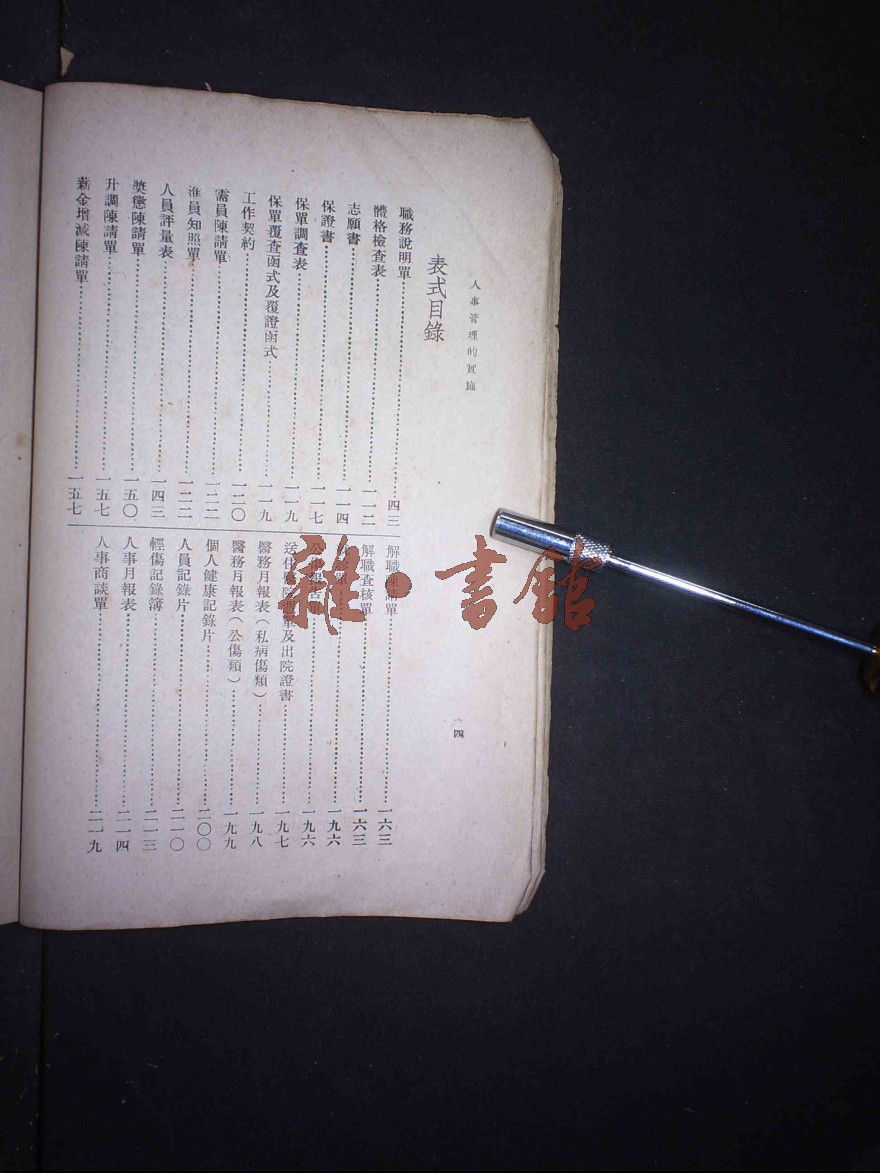 人事管理的實施
四
表式目錄
職務說明單 四三
體格檢查表 一一二
志願書 一一四
保證書 一一七
保單調查表 一一九
保單覆查函式及覆證函式 一一九
工作契約 一二〇
需員陳請單 一二二
准員知照單 一二二
人員評量表 一四三
獎懲陳請單 一五〇
升調陳請單 一五七
薪金增減陳請單 一五七
解職陳請單 一六三
解職查核單 一六三
一九六
一九六
送住 院 單及出院證書 一九七
醫務月報表(私病傷類) 一九八
醫務月報表(公傷類) 一九九
個人健康記錄片 二〇〇
人員記錄片 二一〇
輕傷記錄簿 二一三
人事月報表 二一四
人事商談單 二一九
雜·書館